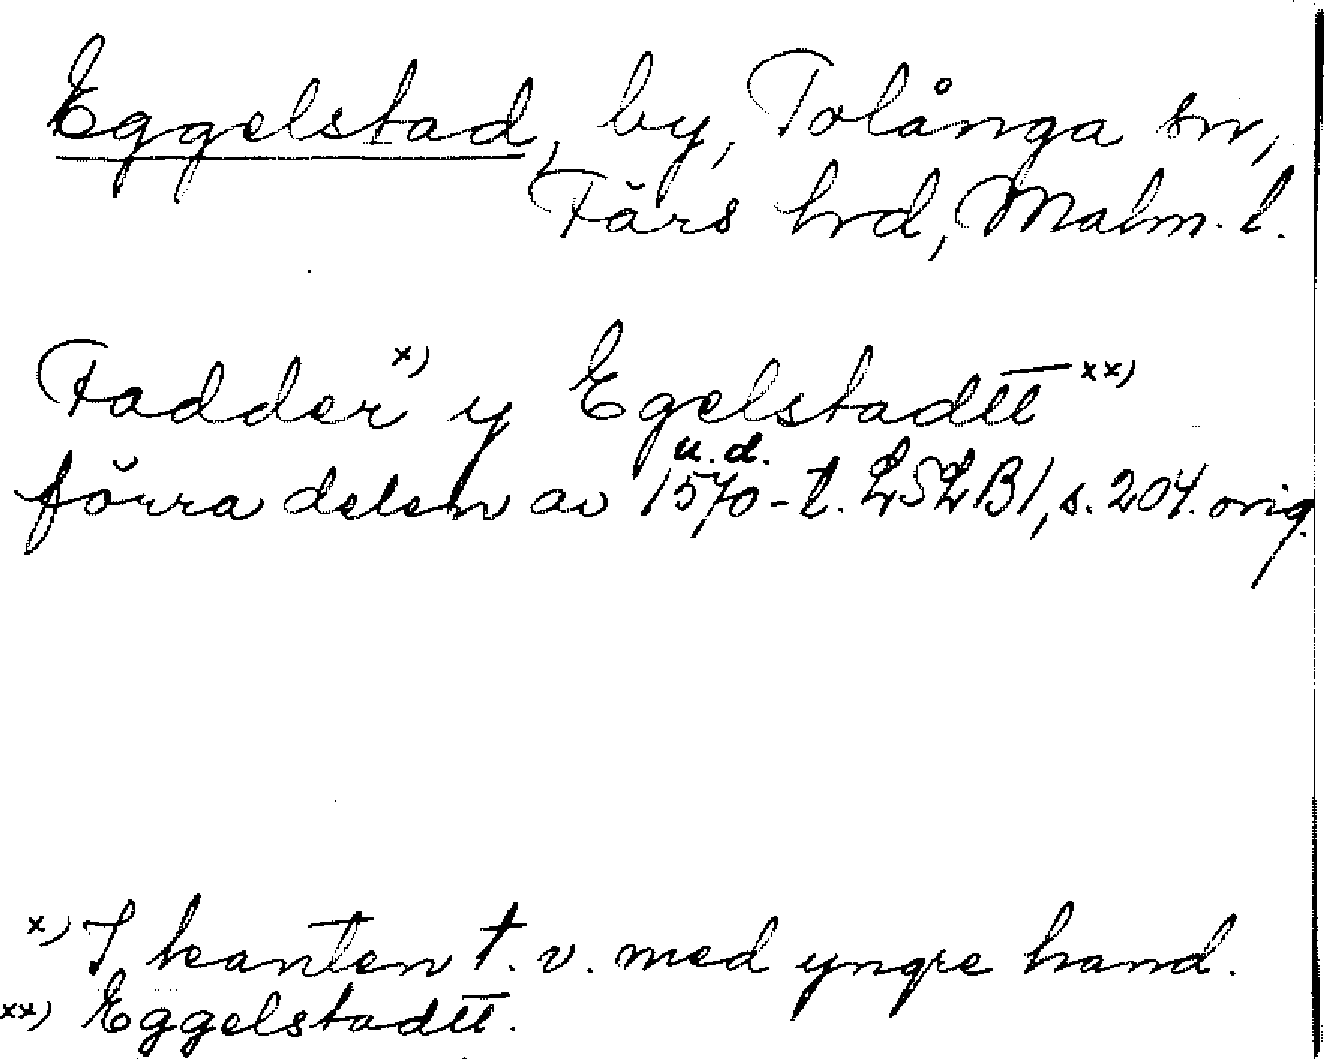 Eggelstad, by, Tolånga sn,
Färs hrd, Malm. l.
Fadder x) y Egelstadtt xx)
u. d.
förra delen av 1570-t. LSLB1, s. 204. orig.
x) I kanten t. v. med yngre hand.
xx) Eggelstadtt.